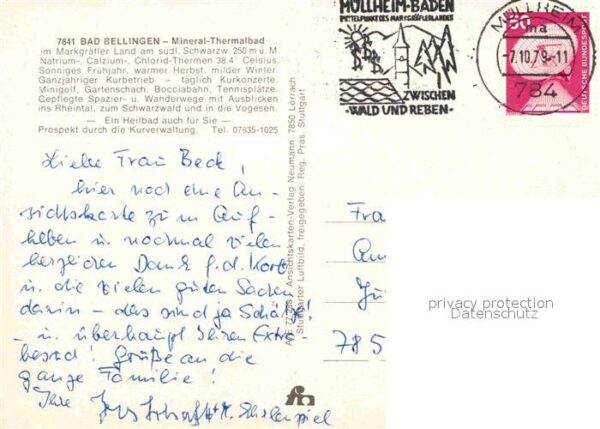 7841 BAD BELLINGEN – Mineral-Thermalbad
im Markgräfler Land am südl. Schwarzw. 250 m ü. M
Natrium-, Calzium-, Chlorid-Thermen 38.4° Celsius.
Sonniges Frühjahr, warmer Herbst, milder Winter.
Ganzjähriger Kurbetrieb – täglich Kurkonzerte.
Minigolf, Gartenschach, Bocciabahn, Tennisplätze.
Gepflegte Spazier- u. Wanderwege mit Ausblicken
ins Rheintal, zum Schwarzwald und in die Vogesen.
— Ein Heilbad auch für Sie —
Prospekt durch die Kurverwaltung. Tel. 07635-1025
MÜLLHEIM-BADEN
MITTELPUNKT DES MARKGRÄFLERLANDES
ZWISCHEN
-WALD UND REBEN-
MÜLLHEIM
ma
-7.10.79-11
784
50
DEUTSCHE BUNDESPOST
Liebe Frau Beck!
hier noch eine An-
sichtskarte zum Auf-
heben u. nochmal vielen
herzlichen Dank f. d. Korb
u. die vielen guten Sachen
darin – das sind ja Schätze!
– u. überhaupt Ihren Extra-
besuch! Grüße an die
ganze Familie!
Ihre
Ansichtskarten-Verlag Neumann 7850 Lörrach
Stuttgarter Luftbild, freigegeben Reg. Präs. Stuttgart
Fra
78 5
privacy protection
Datenschutz